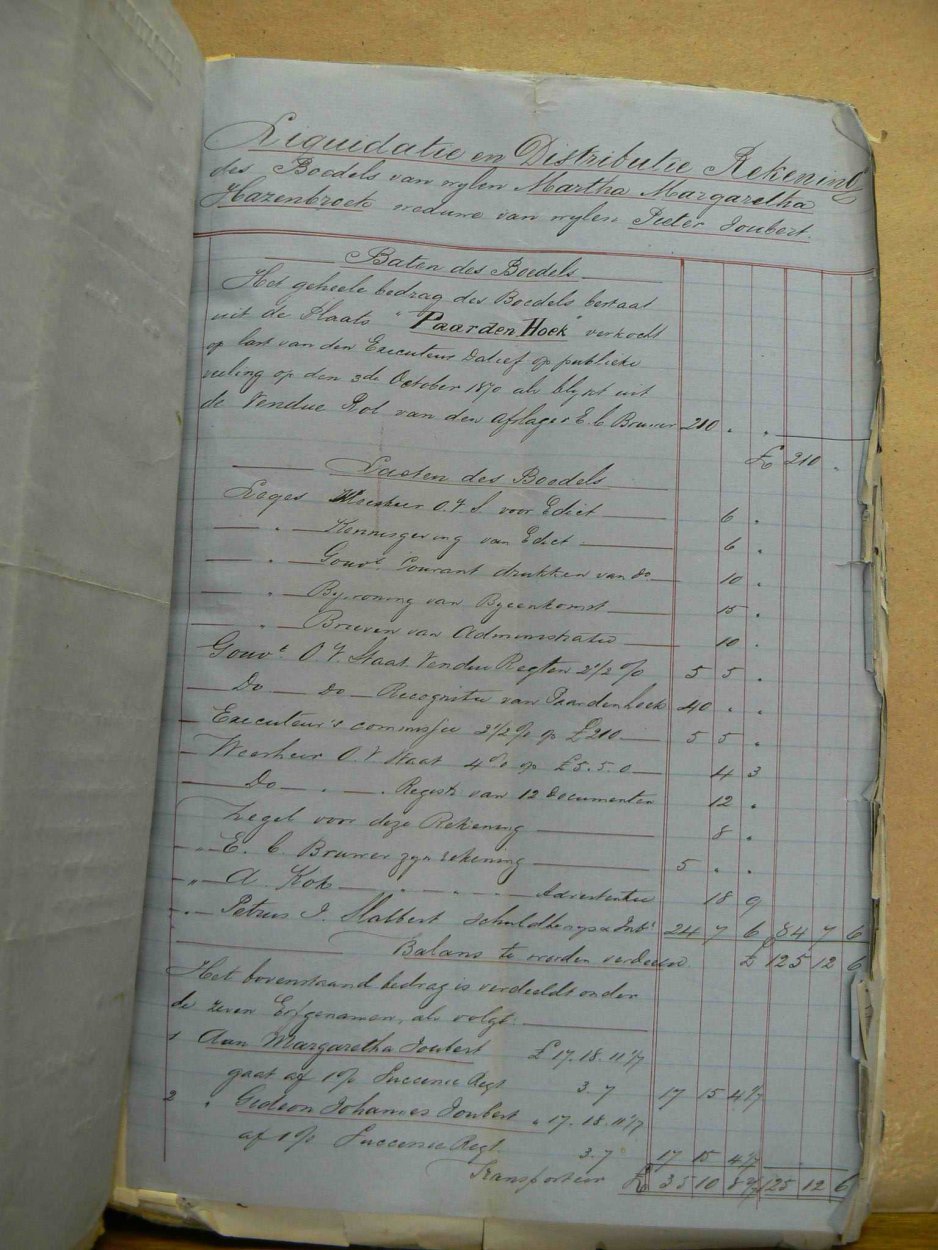 Liquidatie en Distributie Rekening
des Boedels van wylen Martha Margaretha
Hazenbroek weduwe van wylen Pieter Joubert.
Baten des Boedels
Het geheele bedrag des Boedels bestaat
uit de Plaats "Paarden Hoek" verkocht
op last van den Executeur Datief op publieke
veiling op den 3de October 1870 als blykt uit
de Vendue Rol van den Afslager E. C. Bruwer 210 " "
£ 210 "
Lasten des Boedels
Leges Weesheer O.V.S. voor Edict 6 "
" Kennisgeving van Edict 6 "
" Gouvts Courant drukken van do 10 "
" Bywoning van Byeenkomst 15 "
" Brieven van Administratie 10 "
Gouvt O.V. Staat Vendue Regten 2 1/2 % 5 5 "
Do Do Recognitie van Paardenhoek 40 " "
Executeur's commissie 2 1/2 % op £210 5 5 "
Weesheer O.V. Staat 4 % op £5.5.0 4 3
Do " " Registr van 12 Documenten 12 "
Zegel voor deze Rekening 8 "
" E. C. Bruwer zyn rekening 5 " "
" A. Kok " " " Advertentie 18 9
" Petrus J. Malbert Schuldbewys & Intt 24 7 6 84 7 6
Balans te worden verdeeld £ 125 12 6
Het bovenstaand bedrag is verdeeldt onder
de zeven Erfgenamen, als volgt.
1 Aan Margaretha Joubert £ 17.18.11 1/7
gaat af 1 % Successie Regt 3.7 17 15 4 1/7
2 " Gideon Johannes Joubert " 17.18.11 1/7
af 1 % Successie Regt 3.7 17 15 4 1/7
Transporteer £ 35 10 8 2/7 125 12 6